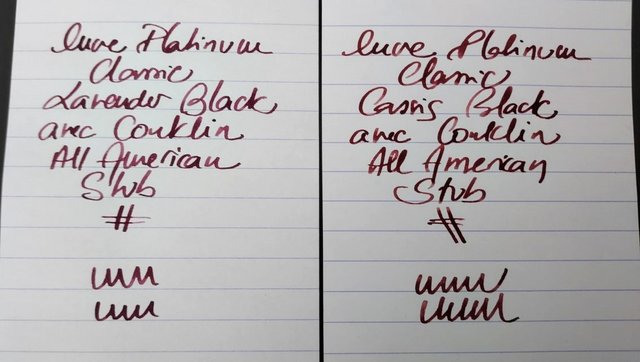 Encre Platinum
Classic
Lavender Black
avec Conklin
All American
Stub
#
Encre Platinum
Classic
Cassis Black
avec Conklin
All American
Stub
#